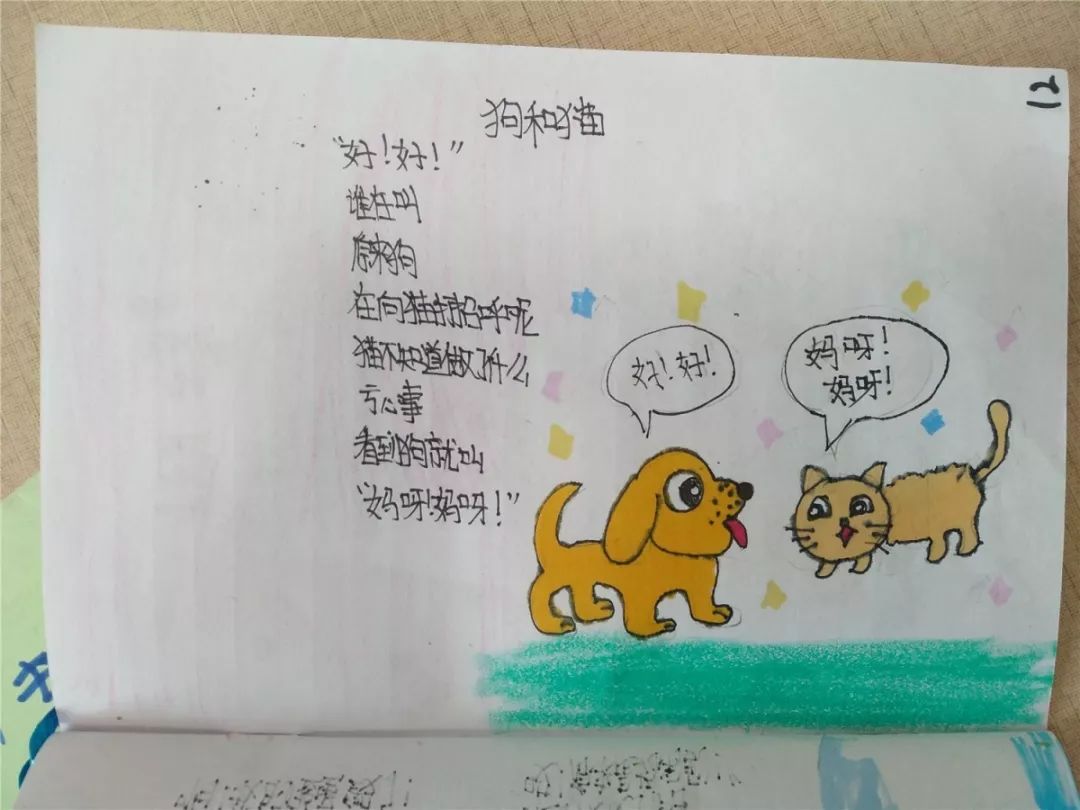 狗和猫
“好！好！”
谁在叫
原来狗
在向猫打招呼呢
猫不知道做了什么
亏心事
看到狗就叫
“妈呀！妈呀！”
好！好！
妈呀！
妈呀！